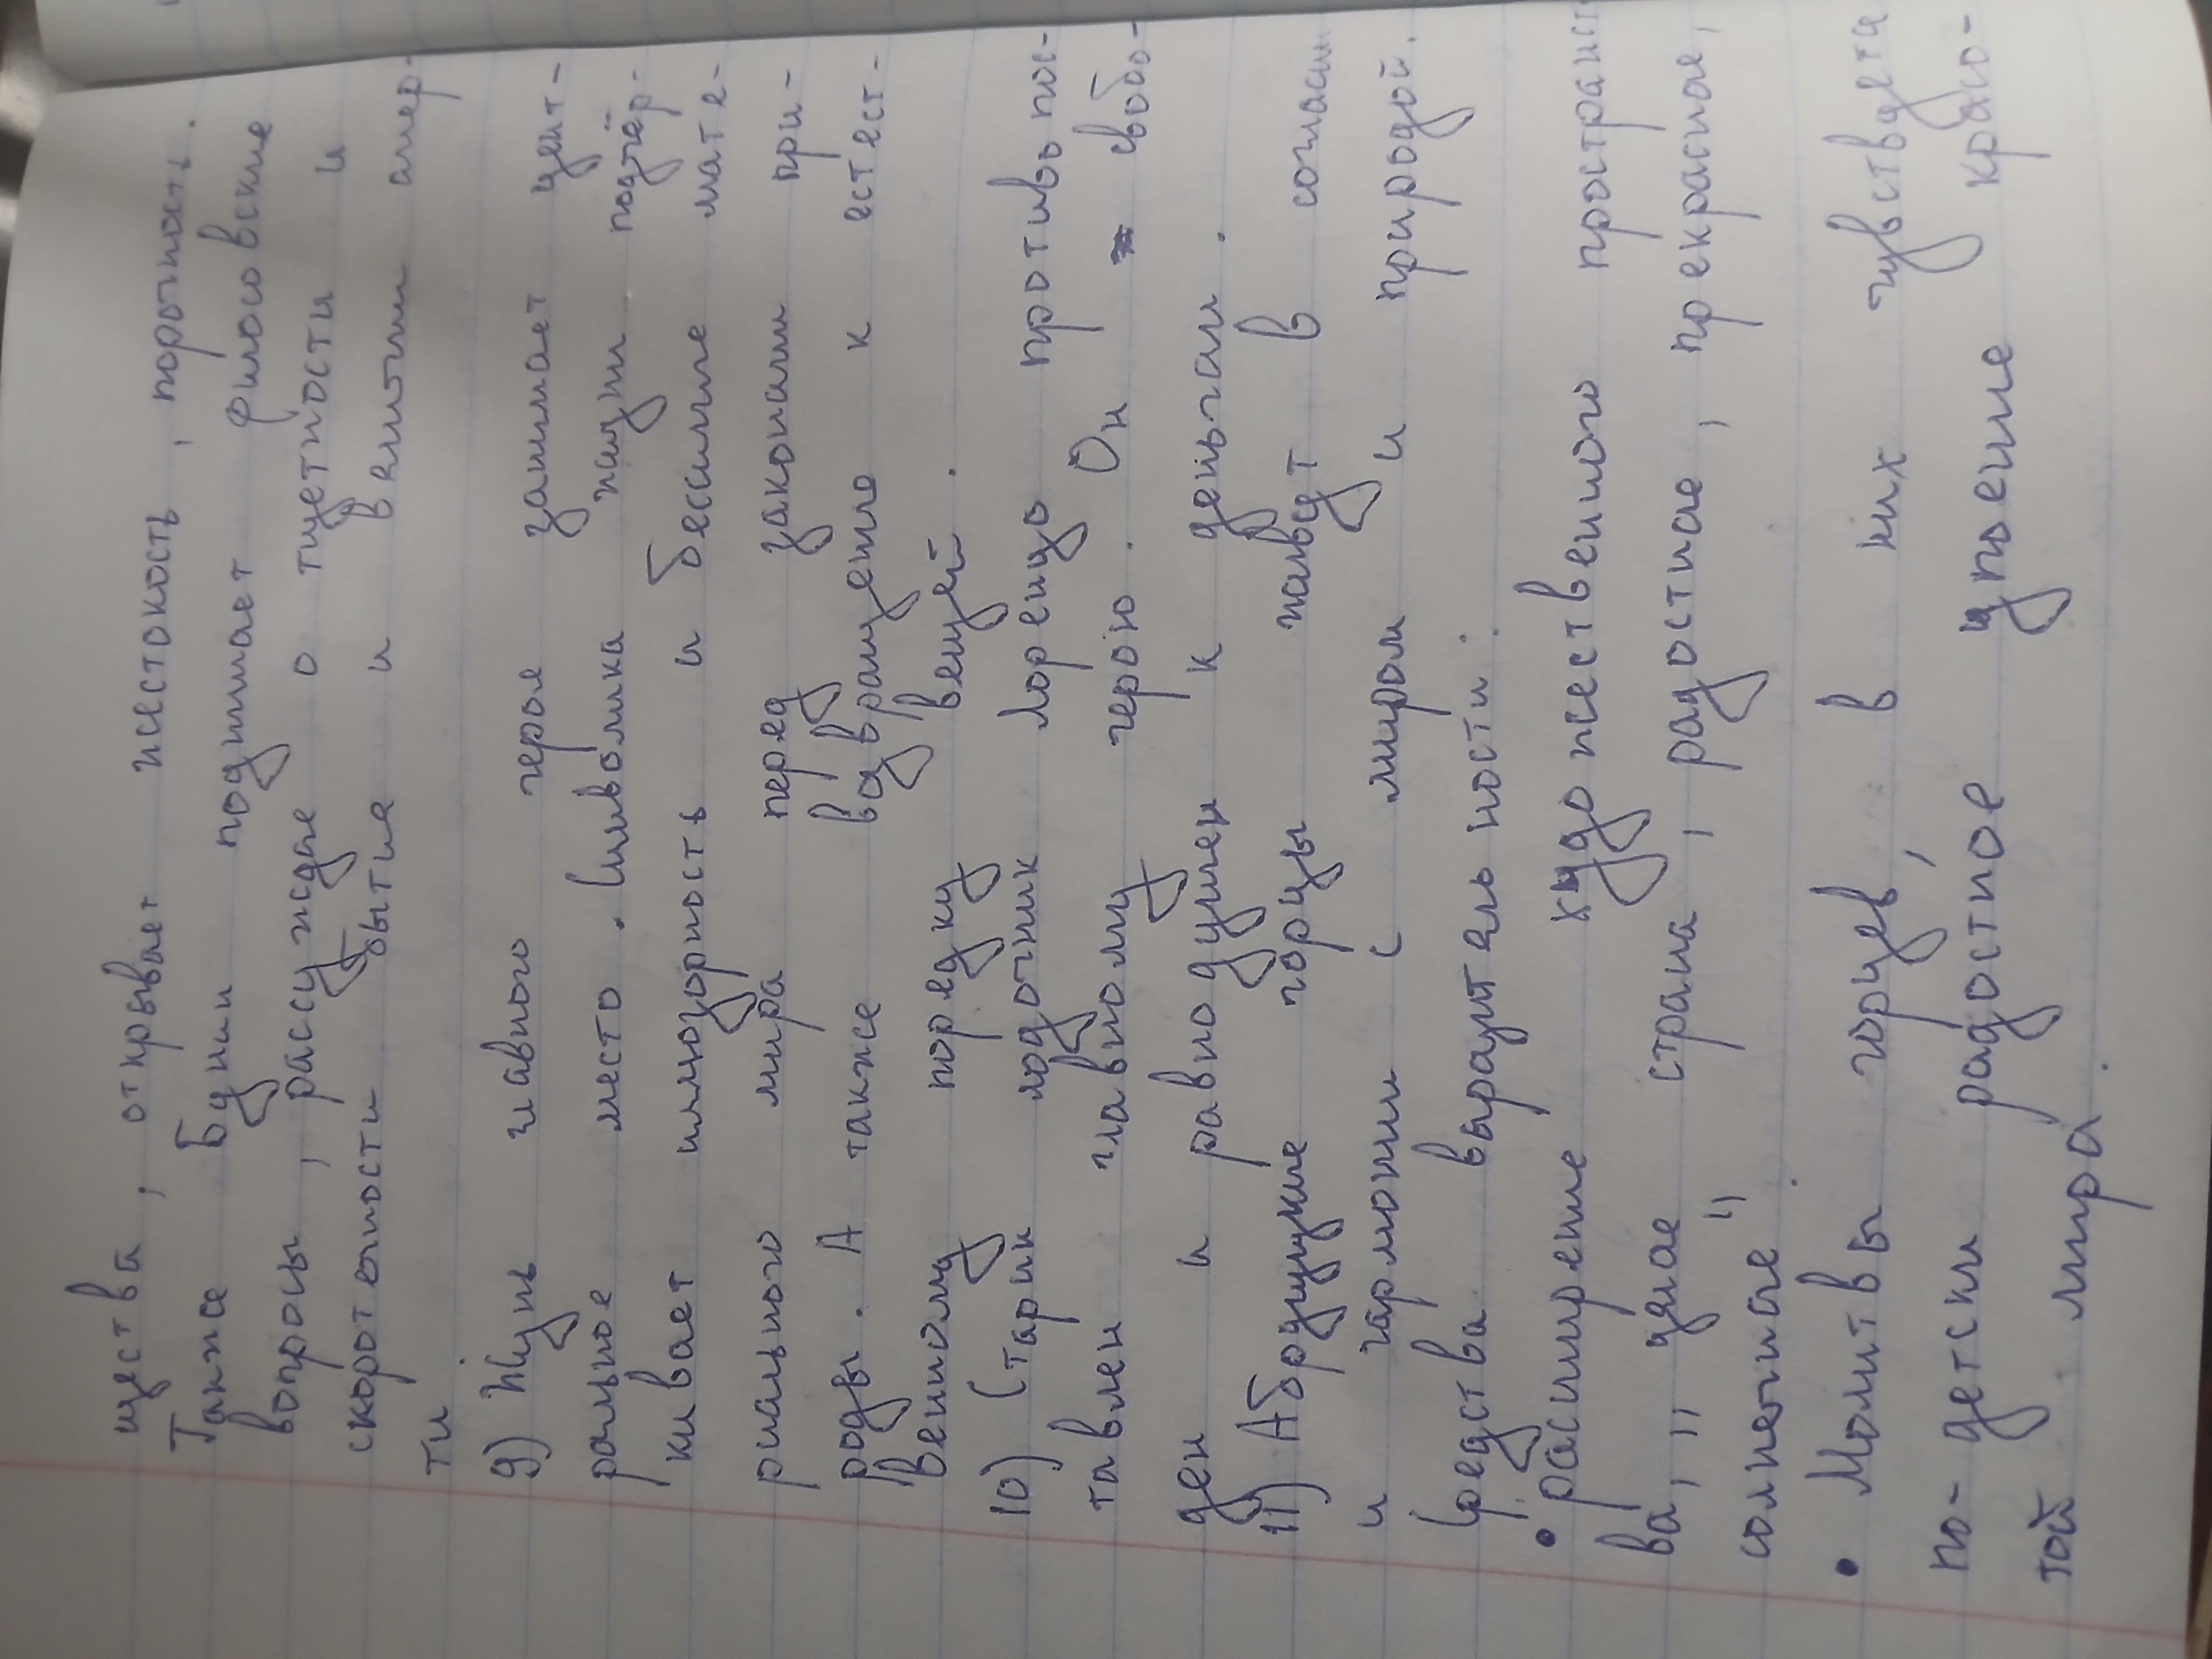 щества, открывает жестокость, порочность.
Также Бунин поднимает филосовские
вопросы, рассуждае о тщетности и
скоротечности бытие и величии смер-
ти
9) Жизнь главного героя занимает цент-
ральное место. Символика жизни подчёр-
кивает иллюзорность и бессилие мате-
риального мира перед законами при-
роды. А также возвращение к естест-
венному порядку вещей.
10) Старик лодочник Лоренцо противопос-
тавлен главному герою. Он свобо-
ден и равнодушен к деньгам.
11) Абруццкие горцы живут в согласии
и гармонии с миром и природой.
Средства выразительности:
• расширение художественного пространст
ва, „ целое страна, радостная, прекрасная,
солнечная "
• Молитвы горцев, в них чувствуется
по-детски радостное упоение красо-
той мира.